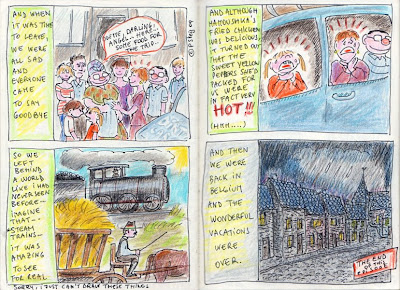 AND WHEN
IT WAS TIME
TO LEAVE,
WE WERE
ALL SAD
AND
EVERYONE
CAME
TO SAY
GOODBYE
DARLING,
ANGEL - HERE'S
SOME FOOD FOR
THE TRIP.
AND ALTHOUGH
FRIED CHICKEN
WAS DELICIOUS
IT TURNED OUT
THAT THE
SWEET YELLOW
PEPPERS SHE'D
PACKED FOR
US WERE
IN FACT VERY
HOT!!!
(HMM....)
SO WE
LEFT
BEHIND
A WORLD
LIKE I HAD
NEVER SEEN
BEFORE -
IMAGINE
THAT -
STEAM
TRAINS -
IT WAS
AMAZING
TO SEE
FOR REAL
SORRY, I JUST CAN'T DRAW THESE THINGS
AND THEN
WE WERE
BACK IN
BELGIUM
AND THE
WONDERFUL
VACATIONS
WERE
OVER.
THE END
OF THIS
EPISODE